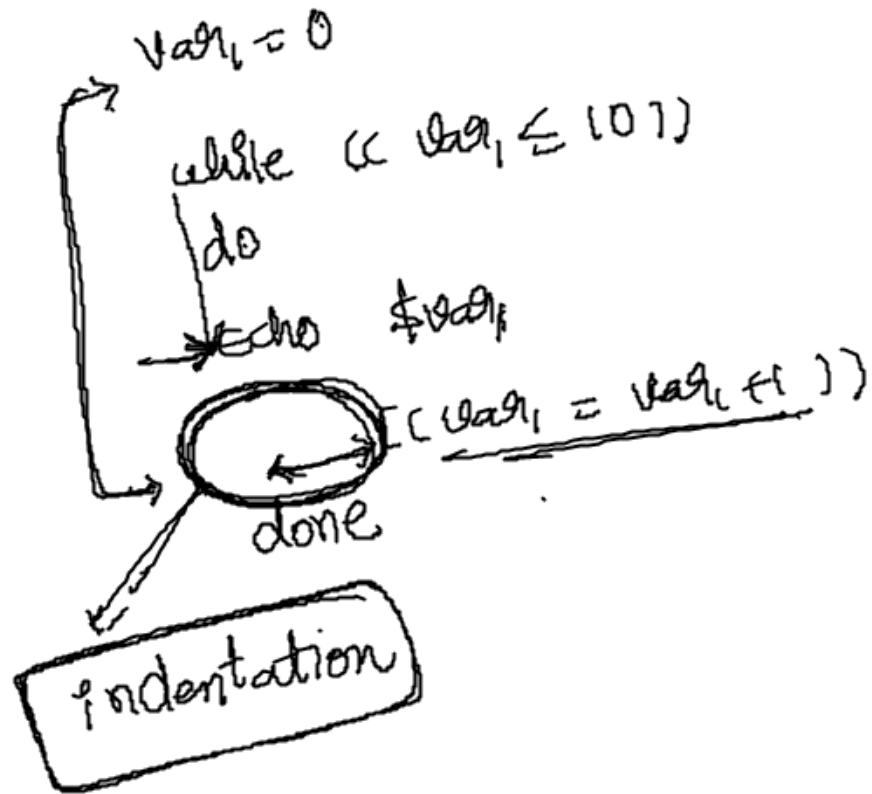 var₁ = 0
while (( var₁ ≤ 10 ))
do
echo $var₁
((var₁ = var₁ + 1 ))
done
indentation